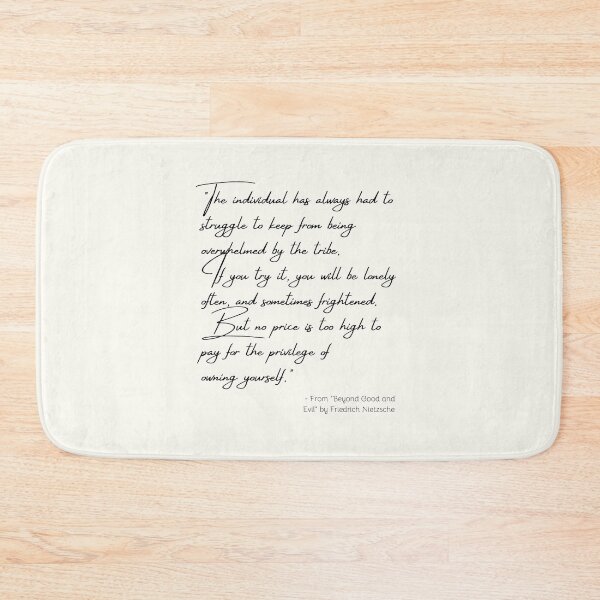 "The individual has always had to
struggle to keep from being
overwhelmed by the tribe.
If you try it, you will be lonely
often, and sometimes frightened.
But no price is too high to
pay for the privilege of
owning yourself."
- From "Beyond Good and
Evil" by Friedrich Nietzsche